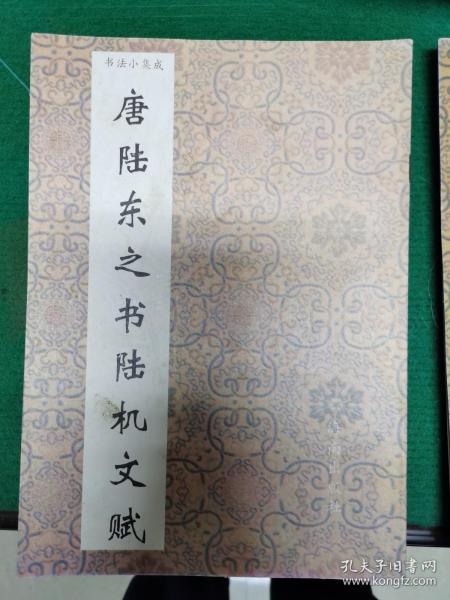 书法小集成
唐陆东之书陆机文赋
孔夫子旧书网
www.kongfz.com